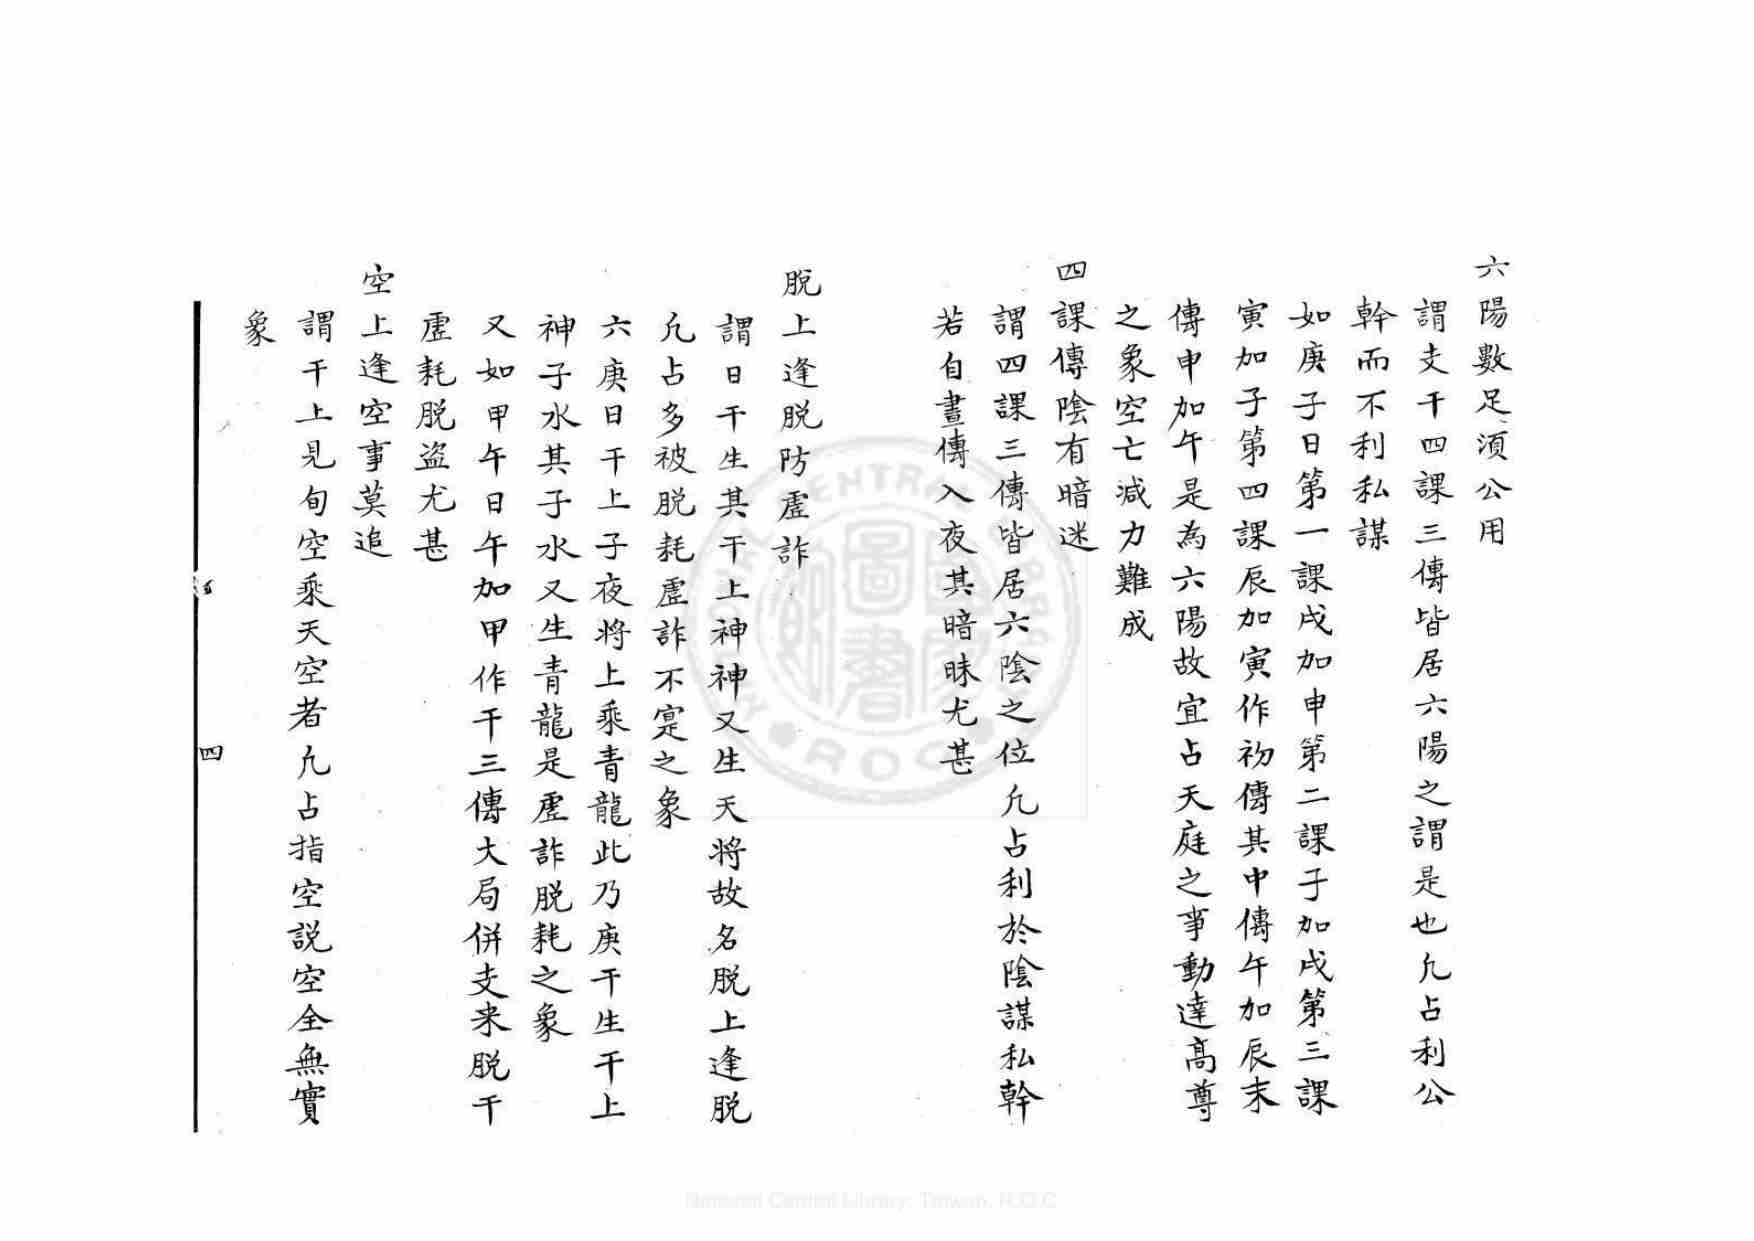 六陽數足湏公用
謂支干四課三傳皆居六陽之謂是也凢占利公
幹而不利私謀
如庚子日第一課戌加申第二課子加戌第三課
寅加子第四課辰加寅作初傳其中傳午加辰末
傳申加午是為六陽故宜占天庭之事動達髙尊
之象空亡減力難成
四課傳陰有暗迷
謂四課三傳皆居六陰之位凢占利於陰謀私幹
若自晝傳入夜其暗昧尤甚
脫上逢脱防虛詐
謂日干生其干上神神又生天將故名脱上逢脱
凢占多被脱耗虛詐不寔之象
六庚日干上子夜將上乘青龍此乃庚干生干上
神子水其子水又生青龍是虛詐脱耗之象
又如甲午日午加甲作干三傳大局併支来脱干
虛耗脱盜尤甚
空上逢空事莫追
謂干上見旬空乘天空者凢占指空説空全無實
象
四
National Central Library, Taiwan, R.O.C
NATIONAL CENTRAL LIBRARY
ROC
國家圖書館